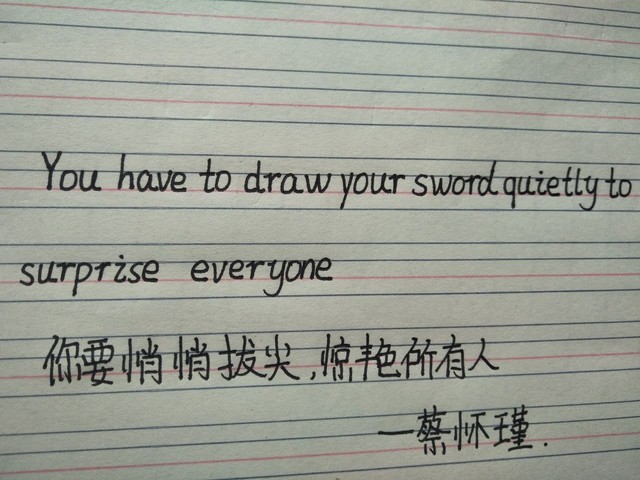 You have to draw your sword quietly to
surprise everyone
你要悄悄拔尖,惊艳所有人
—蔡怀瑾.